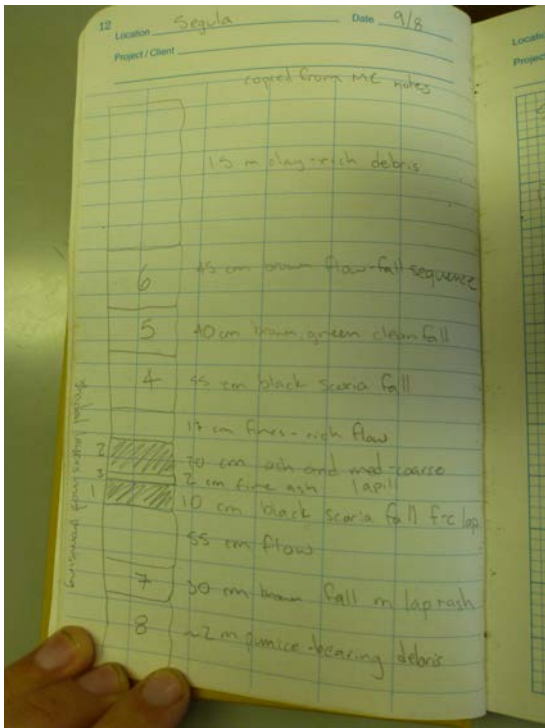 12 Location Segula Date 9/8
Project / Client
copied from MC notes
15 m clay-rich debris
6 45 cm brown flow-fall sequence
5 40 cm brown, green clean fall
4 55 cm black scoria fall
17 cm fines-rich flow
2 70 cm ash and med-coarse
3 2 cm fine ash lapilli
1 10 cm black scoria fall f-c lap
55 cm flow
7 30 cm brown fall m lap + ash
8 ~2 m pumice-bearing debris
Location
Project